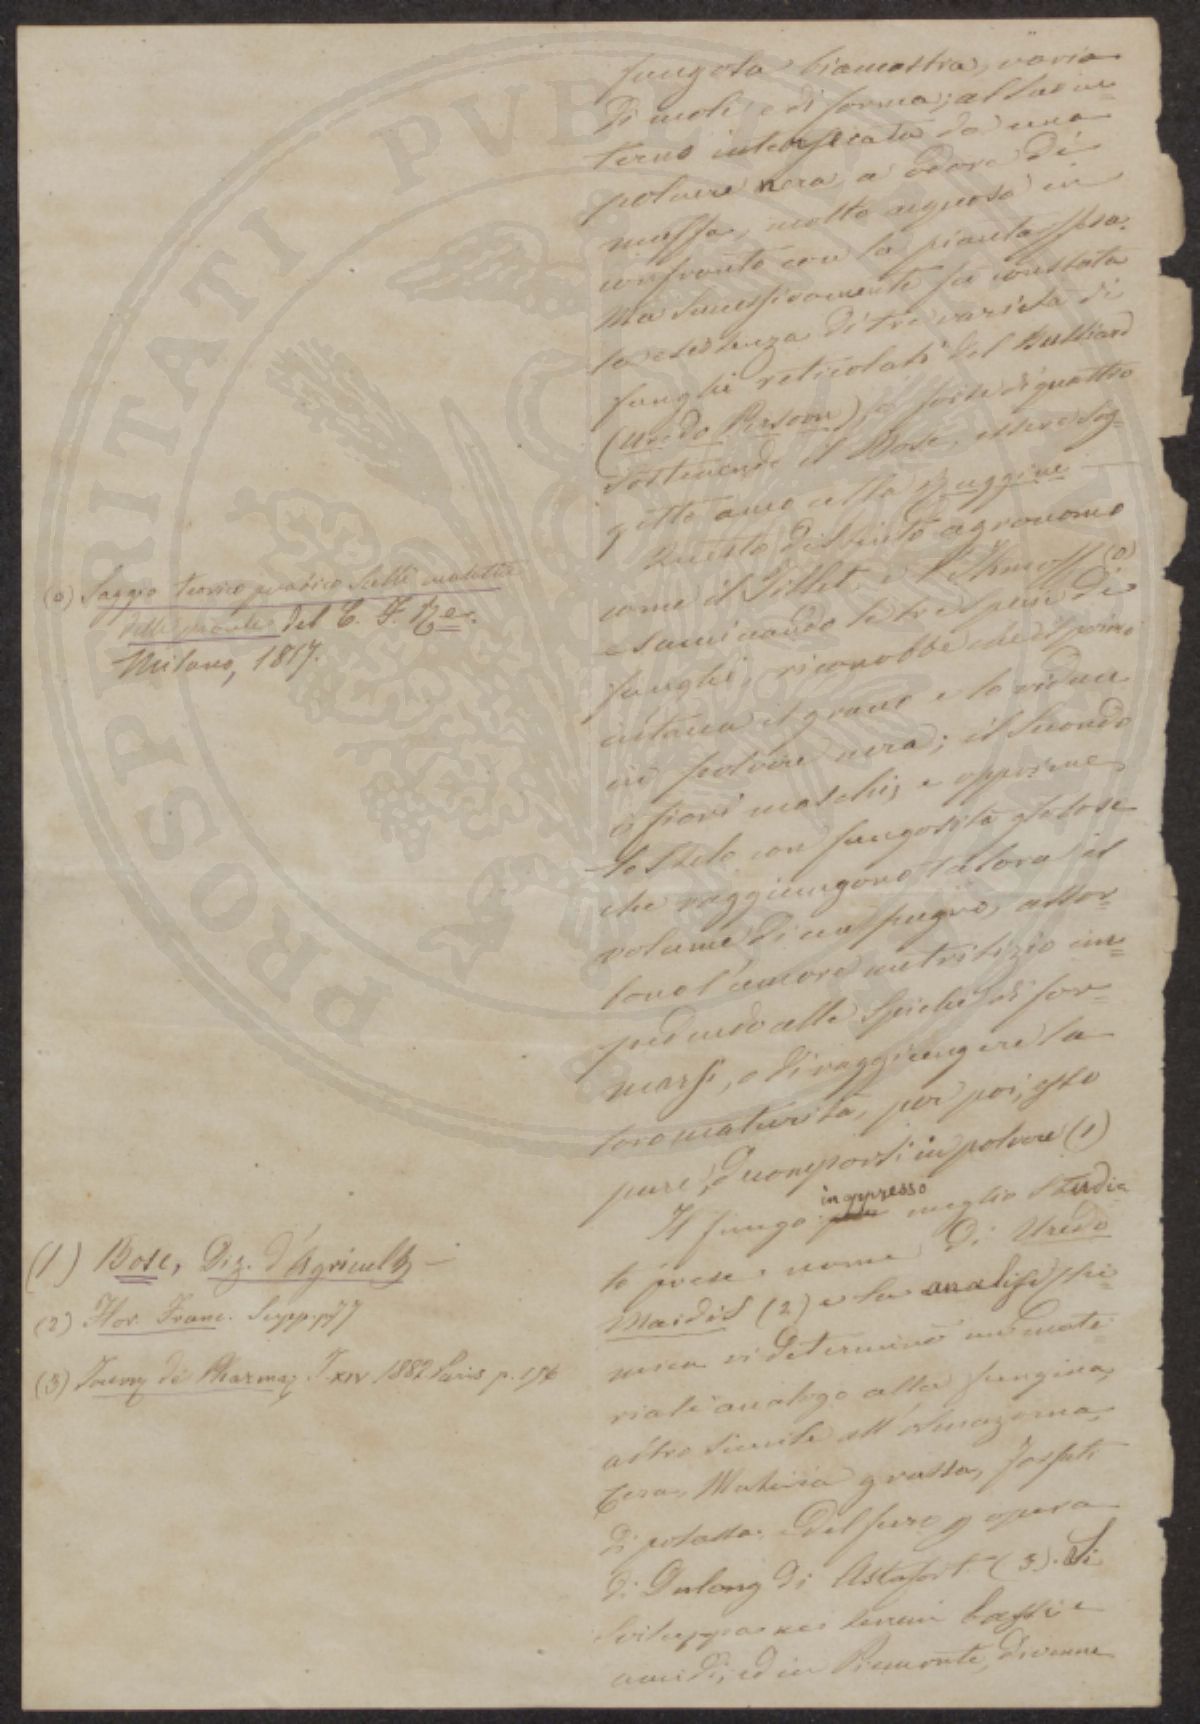 fungosa biancastra, varia
di mole, e di forma; al suo in=
terno intersecata da una
polvere nera, a odore di
muffa, molto acquosa in
confronto con la pianta stessa.
Ma successivamente fu constatata
la esistenza di tre varietà di
funghi reticolati del Bulliard
(Uredo Persoon), e forse di quattro
sostenendo il Bosc, essere sog=
getto anco alla Ruggine
Questo distinto agronomo
come il Tillet e l'Imhoff (a)
esaminando le tre specie di
funghi, riconobbe che il primo
intacca il grano e lo riduce
in polvere nera; il secondo
i fiori maschi, e opprime
lo stelo con fungosità globose
che raggiungono talora il
volume di un pugno, assor=
bono l'umore nutritizio im=
pedendo alle spiche di for=
marsi, o di raggiungere la
loro maturità, per poi, esso
pure, decomporsi in polvere (1)
Il fungo in appresso meglio studia
to prese nome di Uredo
Maidis (2) e la analisi chi=
mica vi determinò una mate
riale analogo alla fungina,
altro simile all'osmazoma,
Cera, Materia grassa, fosfati
di potassa, del ferro p opera
di Dulong di Astafort (3). Si
sviluppa nei terreni bassi e
umidi, ed in Piemonte, divenne
(a) Saggio teorico pratico sulle malattie
delle piante del C. F. Re.
Milano, 1817.
(1) Bosc, Diz. d'Agricult
(2) Flor. Franc. Supp. p 77
(3) Journ de Pharmac. T. XIV 1882 Paris p. 156
PROSPERITATI PVBLI